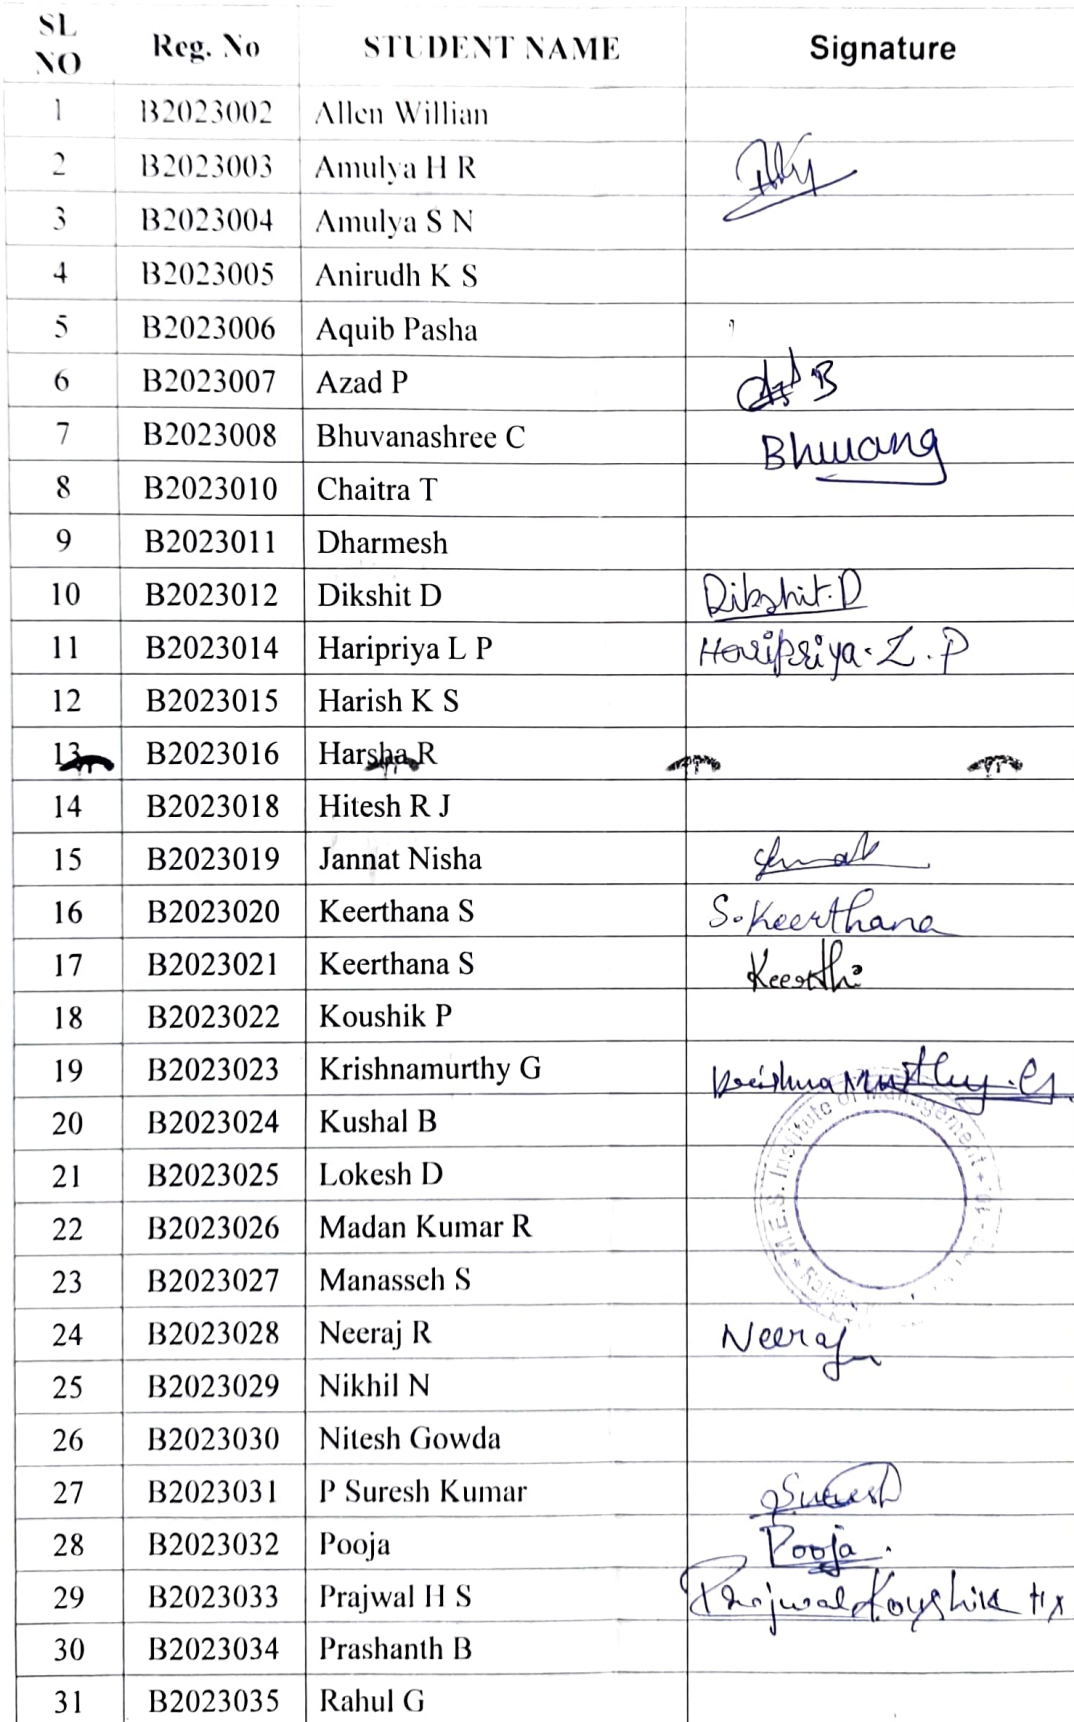 SL NO Reg. No STUDENT NAME Signature
1 B2023002 Allen Willian
2 B2023003 Amulya H R
3 B2023004 Amulya S N
4 B2023005 Anirudh K S
5 B2023006 Aquib Pasha
6 B2023007 Azad P
7 B2023008 Bhuvanashree C
8 B2023010 Chaitra T
9 B2023011 Dharmesh
10 B2023012 Dikshit D Dikshit.D
11 B2023014 Haripriya L P Haripriya.L.P
12 B2023015 Harish K S
13 B2023016 Harsha R
14 B2023018 Hitesh R J
15 B2023019 Jannat Nisha
16 B2023020 Keerthana S S.Keerthana
17 B2023021 Keerthana S Keerthi
18 B2023022 Koushik P
19 B2023023 Krishnamurthy G Krishnamurthy.G
20 B2023024 Kushal B
M.E.S. Institute of Management
21 B2023025 Lokesh D
22 B2023026 Madan Kumar R
23 B2023027 Manasseh S
24 B2023028 Neeraj R Neeraj
25 B2023029 Nikhil N
26 B2023030 Nitesh Gowda
27 B2023031 P Suresh Kumar Suresh
28 B2023032 Pooja Pooja.
29 B2023033 Prajwal H S Prajwal Koushik
30 B2023034 Prashanth B
31 B2023035 Rahul G